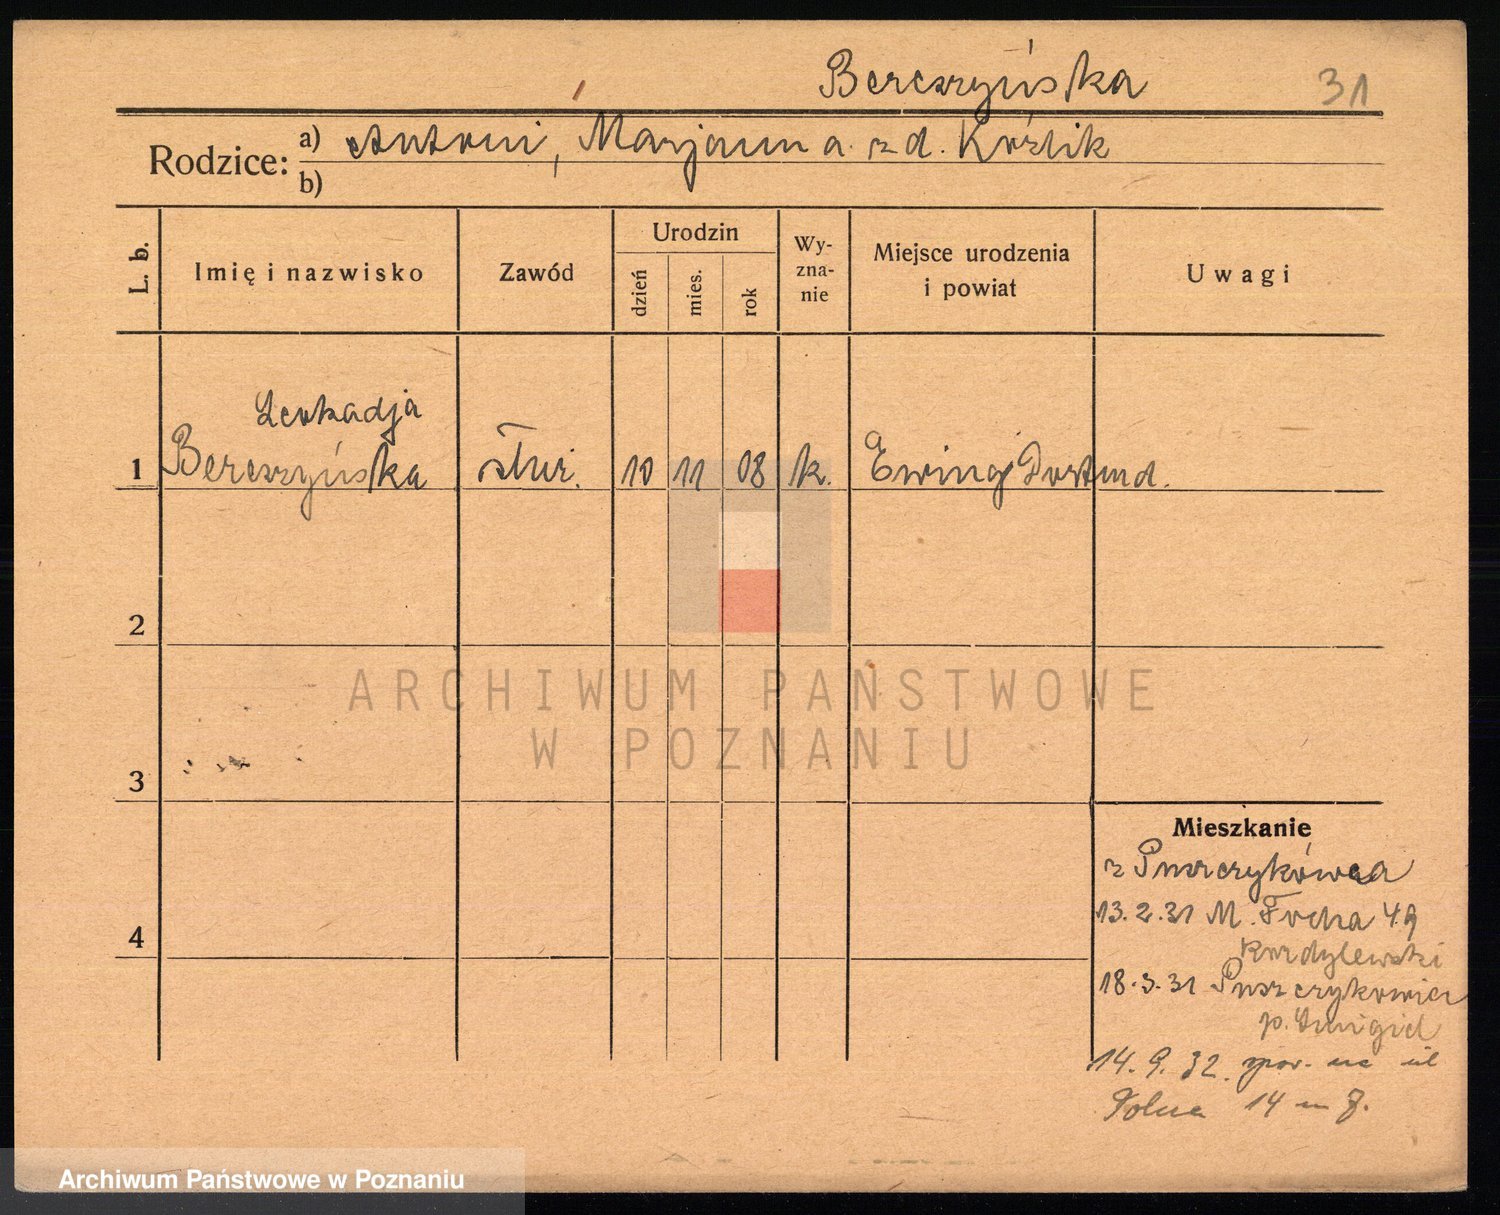 Bereszyńska 31
Rodzice: a) Antoni, Marjanna z d. Koźlik
b)
L. b. Imię i nazwisko Zawód Urodzin dzień mies. rok Wyznanie Miejsce urodzenia i powiat Uwagi
Leokadja
1 Bereszyńska służ. 10 11 08 k. Ewing Dortmund.
2
3
4
ARCHIWUM PAŃSTWOWE
W POZNANIU
Mieszkanie
z Puszczykówca
13.2.31 M. Focha 49
Kordylewski
18.3.31 Puszczykowiec
p. Śmigiel
14.9.32. zpow. na ul
Polna 14 m 7.
Archiwum Państwowe w Poznaniu